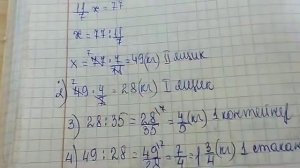 11/7 x = 77
x = 77 : 11/7
x = 77 · 7/11 = 49 (кг) II ящик
2) 49 · 4/7 = 28 (кг) I ящик
3) 28 : 35 = 28/35 = 4/5 (кг) 1 контейнер
4) 49 : 28 = 49/28 = 7/4 = 1 3/4 (кг) 1 стакан